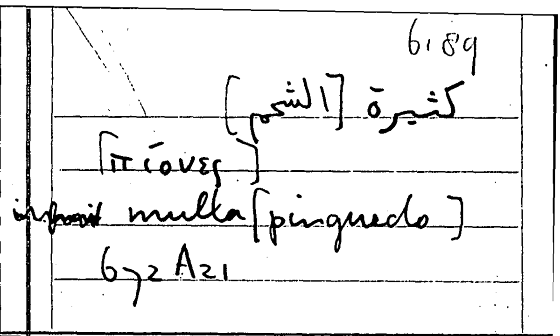 6.89
كثيرة [الشحم]
[πίονες]
multa [pinguedo]
672 A21